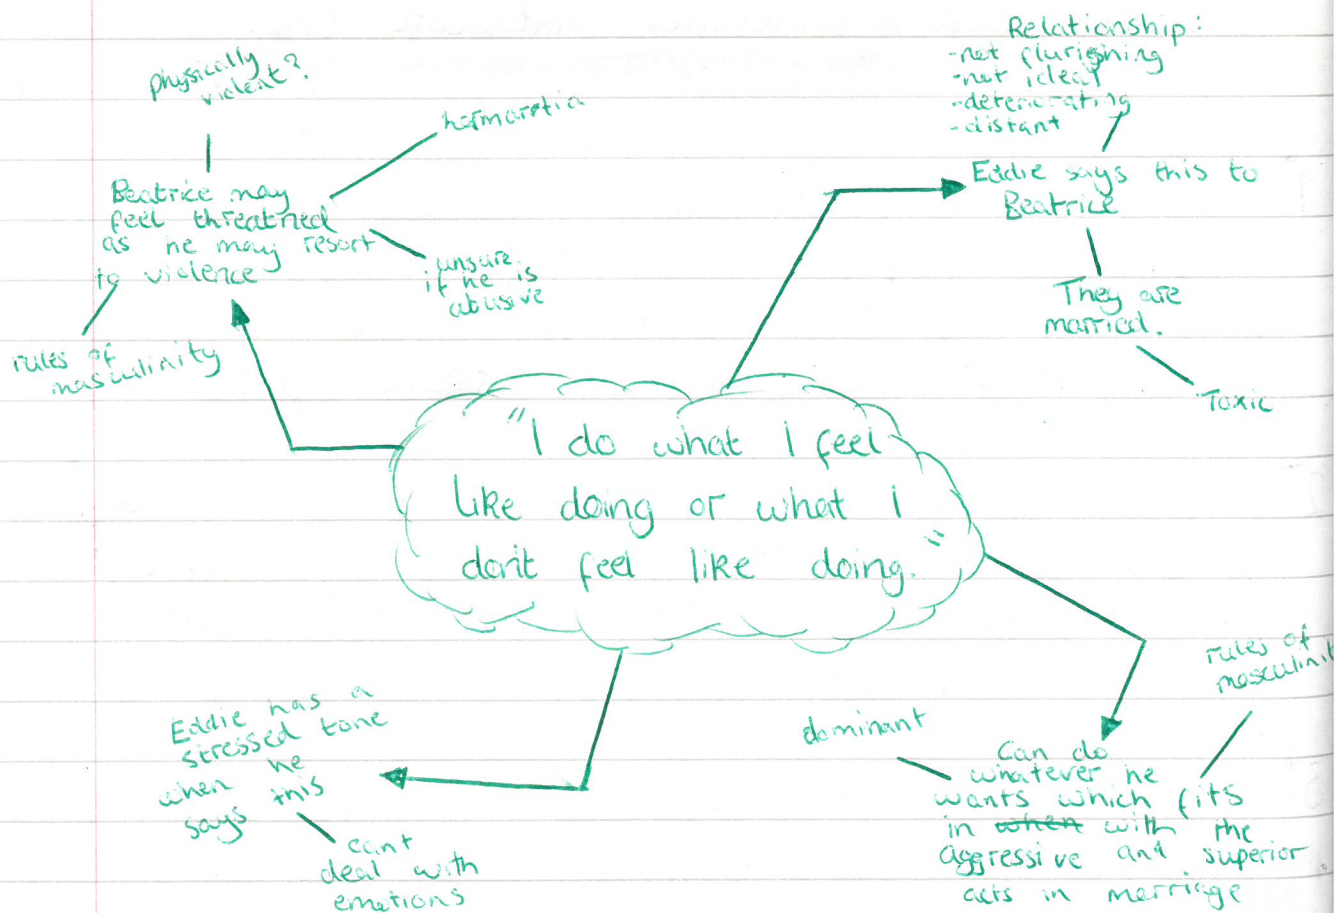 physically
violent?
hermarstia
Beatrice may
feel threatned
as he may resort
to violence
unsure
if he is
abusive
rules of
masculinity
Relationship:
-not flurishing
-not ideal
-deteriorating
-distant
Eddie says this to
Beatrice
They are
married.
Toxic
"I do what I feel
like doing or what I
don't feel like doing."
Eddie has a
stressed tone
when he
says this
cant
deal with
emotions
dominant
rules of
masculinit
Can do
whatever he
wants which fits
in when with the
aggressive and superior
acts in marriage